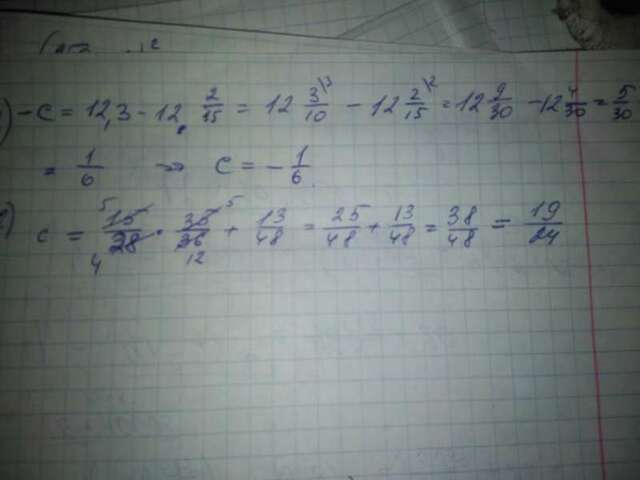 ) -c = 12,3 - 12 2/15 = 12 3/10 \3 - 12 2/15 \2 = 12 9/30 - 12 4/30 = 5/30
= 1/6 => c = - 1/6
) c = 15/28 · 35/36 + 13/48 = 25/48 + 13/48 = 38/48 = 19/24
5 5
4 12